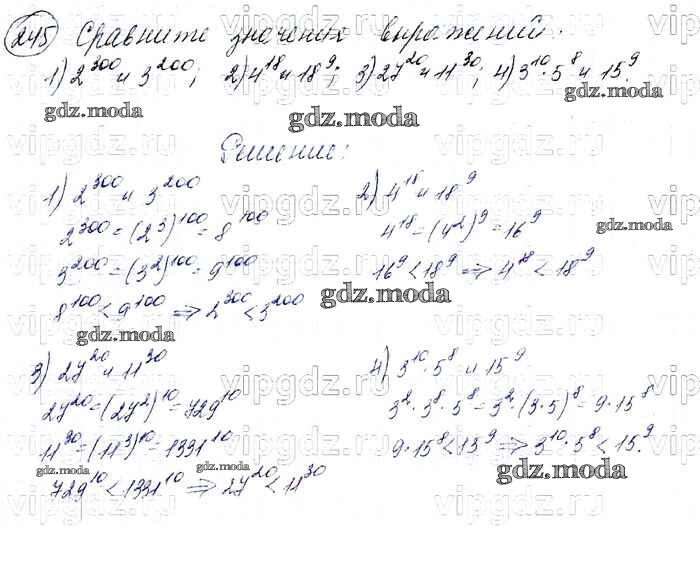 245 Сравните значения выражений.
1) 2^300 и 3^200; 2) 4^18 и 18^9; 3) 27^20 и 11^30; 4) 3^10 · 5^8 и 15^9.
Решение:
1) 2^300 и 3^200
2^300 = (2^3)^100 = 8^100
3^200 = (3^2)^100 = 9^100
8^100 < 9^100 => 2^300 < 3^200
2) 4^18 и 18^9
4^18 = (4^2)^9 = 16^9
16^9 < 18^9 => 4^18 < 18^9
3) 27^20 и 11^30
27^20 = (27^2)^10 = 729^10
11^30 = (11^3)^10 = 1331^10
729^10 < 1331^10 => 27^20 < 11^30
4) 3^10 · 5^8 и 15^9
3^2 · 3^8 · 5^8 = 3^2 · (3 · 5)^8 = 9 · 15^8
9 · 15^8 < 15^9 => 3^10 · 5^8 < 15^9.
gdz.moda
vipgdz.ru